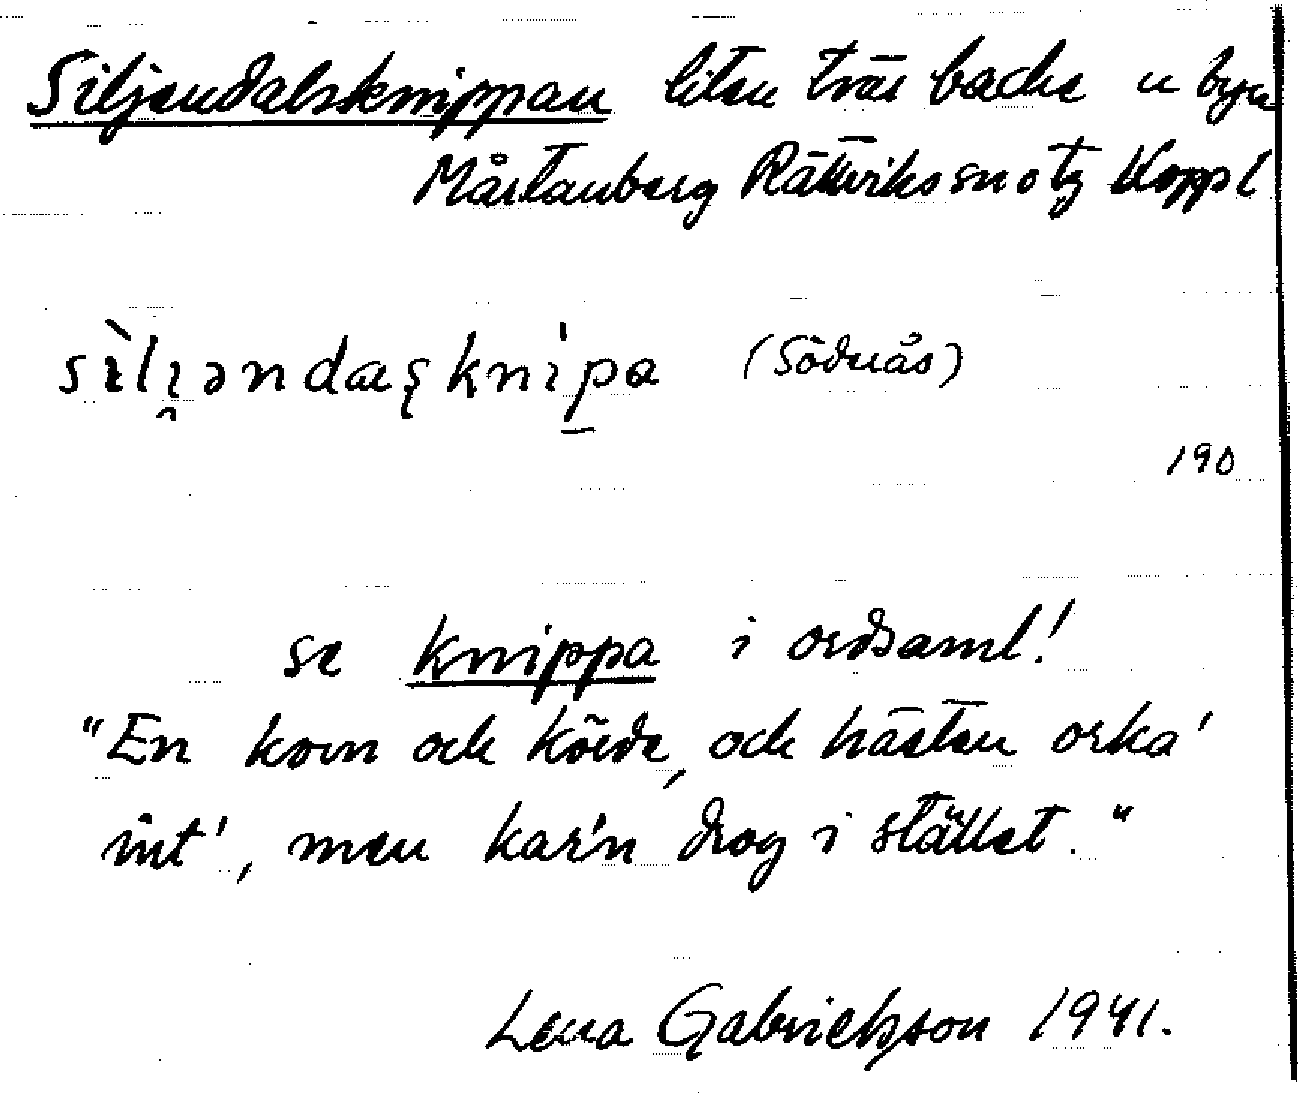 Siljansdalsknippan liten tvär backe n byn
Mårtanberg Rättviks sn o tg Koppl
sìlı̯əndaʂknipa (Södnäs)
190
se knippa i ordsaml!
"En kom och körde, och hästen orka'
int', men kar'n drog i stället."
Lena Gabrielsson 1941.